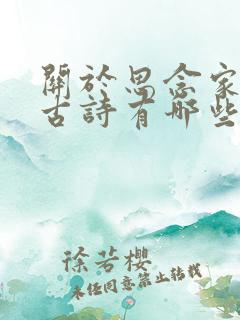 關於思念家
古詩有哪些
徐若櫻
未经同意禁止转载